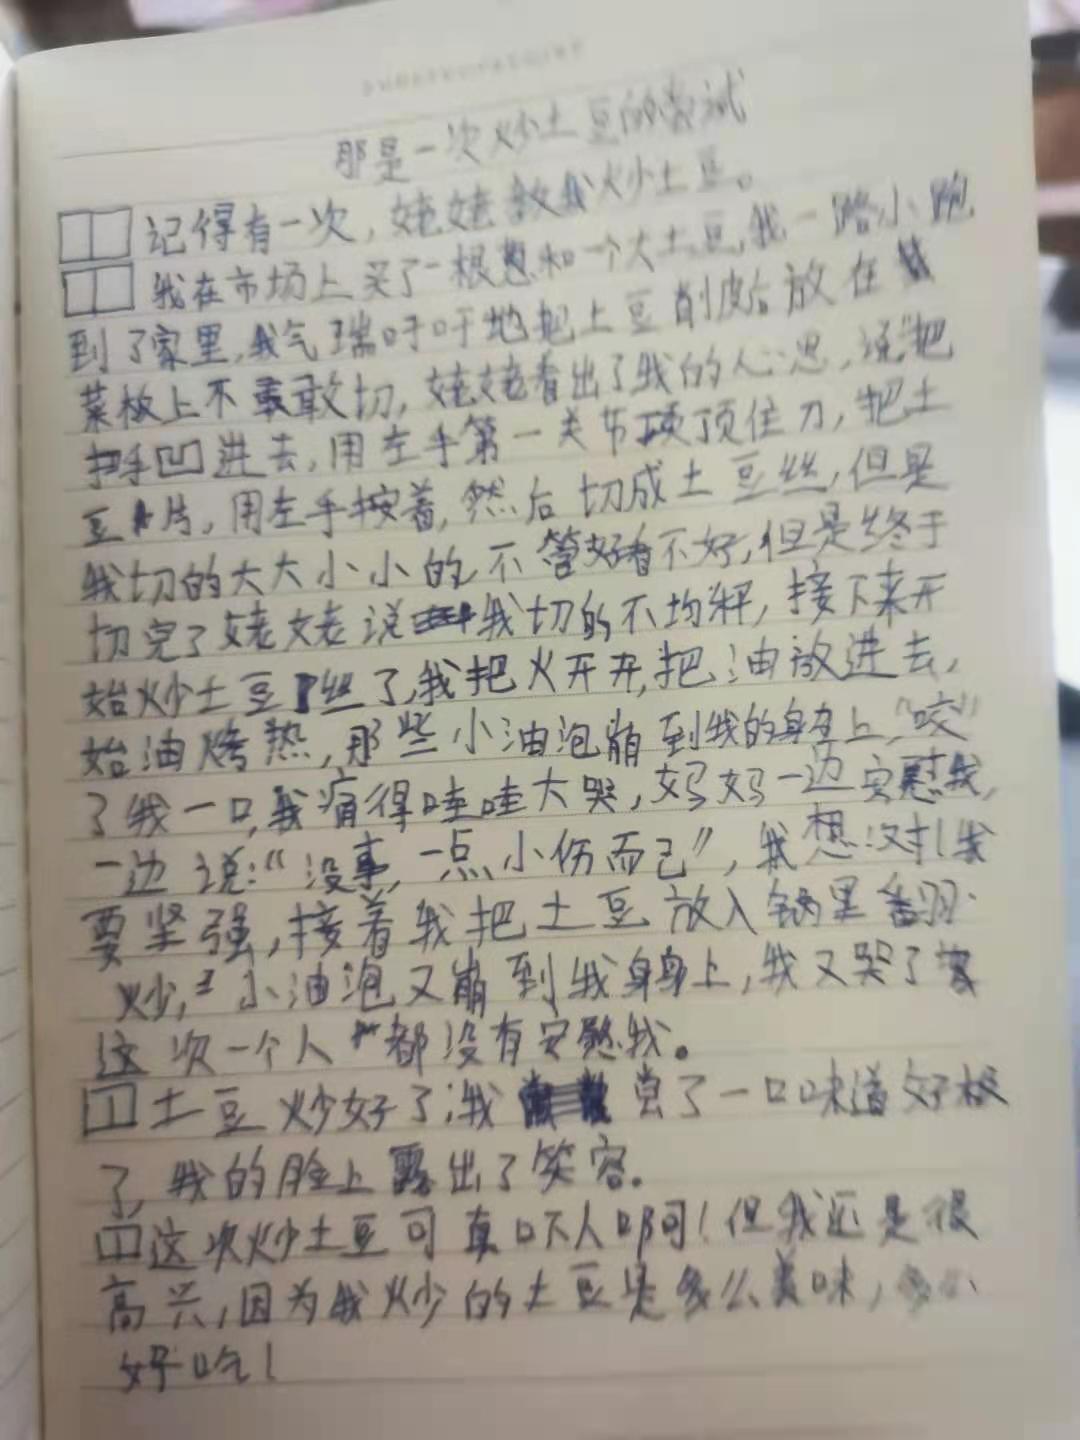 那是一次炒土豆的尝试
记得有一次，姥姥教我炒土豆。
我在市场上买了一根葱和一个大土豆，我一路小跑
到了家里，我气瑞吁吁地把土豆削皮后放在
菜板上不敢切，姥姥看出了我的心思，说“把
手凹进去，用左手第一关节顶住刀，把土
豆片，用左手按着，然后切成土豆丝，但是
我切的大大小小的，不管好看不好，但是终于
切完了姥姥说我切的不均释，接下来开
始炒土豆丝了，我把火开开，把油放进去，
始油烤热，那些小油泡崩到我的身上，“咬”
了我一口，我痛得哇哇大哭，妈妈一边安慰我，
一边说：“没事，一点小伤而己”，我想对我
要坚强，接着我把土豆放入锅里翻
炒，小油泡又崩到我身上，我又哭了
这次一个人都没有安慰我。
土豆炒好了，我尝了一口味道好极
了，我的脸上露出了笑容。
这次炒土豆可真吓人啊！但我还是很
高兴，因为我炒的土豆是多么美味，多么
好吃！